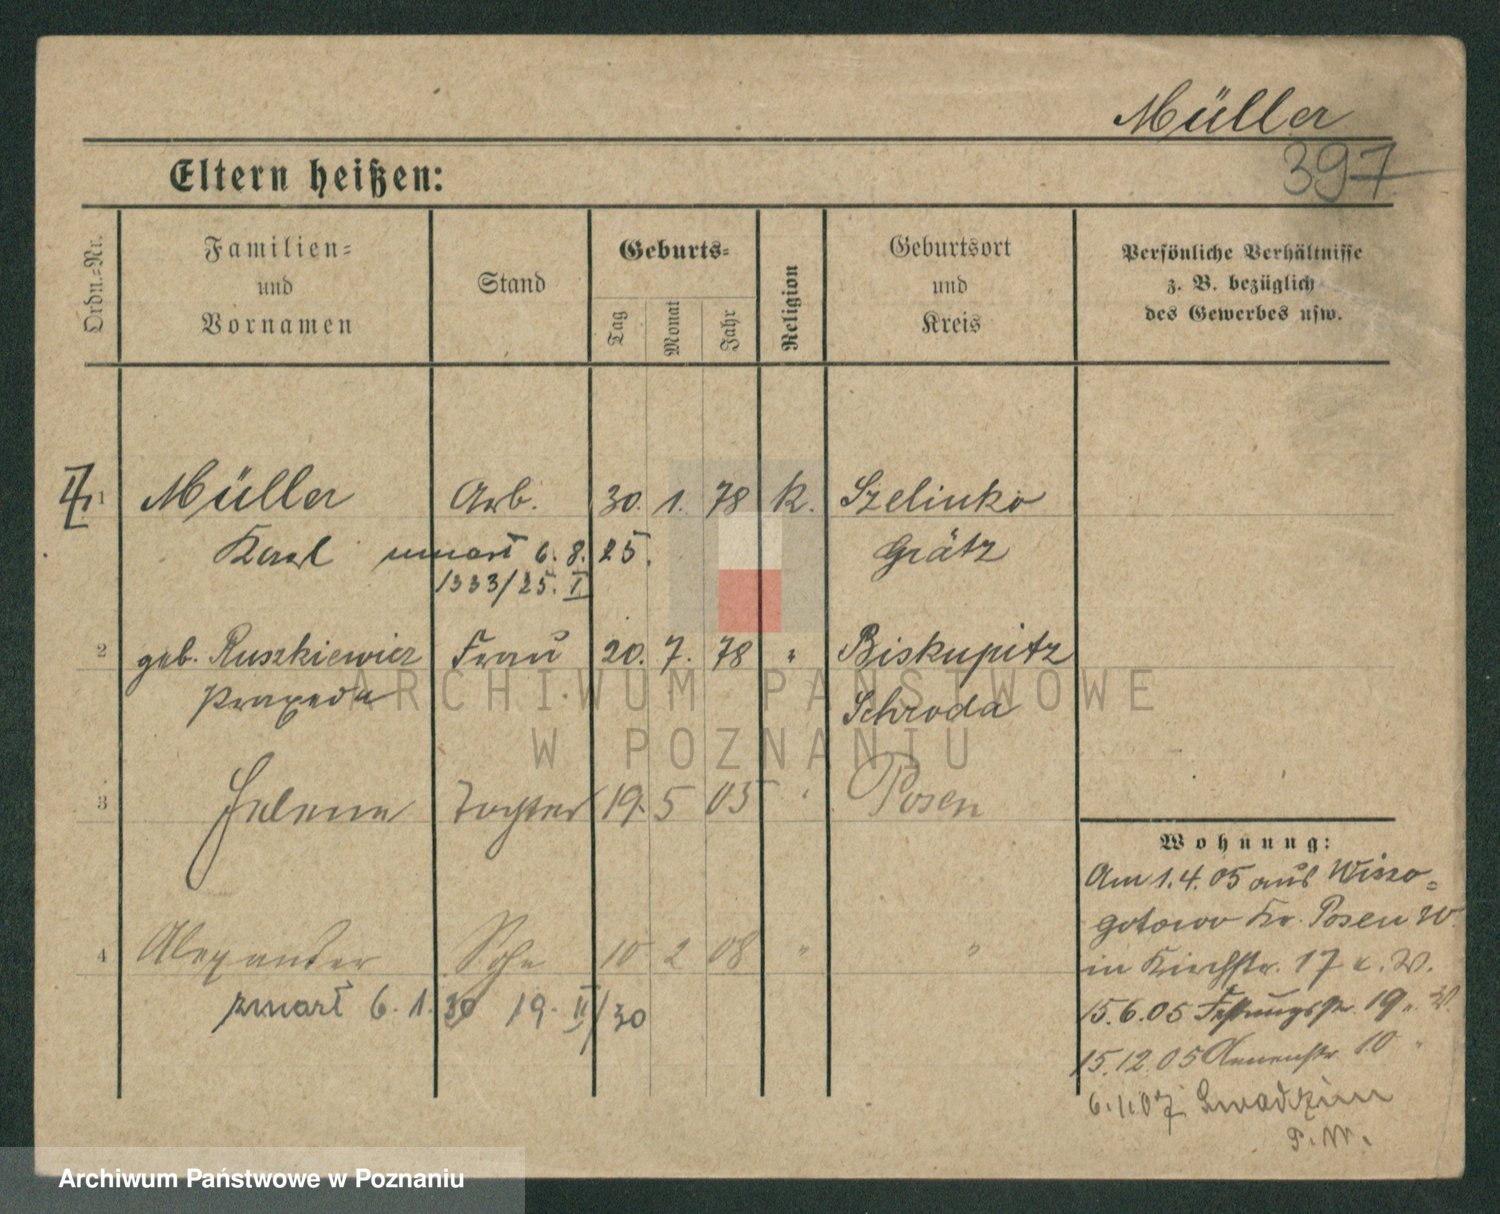 Müller
Eltern heißen:
397
Ordn.-Nr.
Familien-
und
Vornamen
Stand
Geburts-
Tag
Monat
Jahr
Religion
Geburtsort
und
Kreis
Persönliche Verhältnisse
z. B. bezüglich
des Gewerbes usw.
1 Müller Arb. 30. 1. 78 k. Szelinko
Karl umarł 6. 8. 25. Grätz
1333/25. I
2 geb. Ruszkiewicz Frau 20. 7. 78 " Biskupitz
Praxeda Schroda
3 Helene Tochter 19. 5 05 " Posen
4 Alexander Sohn 10 2 08 " "
zmarł 6. 1. 30 19. II/30
Wohnung:
Am 1.4.05 aus Wiszo-
gotowo Kr. Posen W.
in Kirchstr. 17 W.
15.6.05 Festungsstr. 19
15.12.05 10 "
6.1.07
P. W.
ARCHIWUM PAŃSTWOWE
W POZNANIU
Archiwum Państwowe w Poznaniu